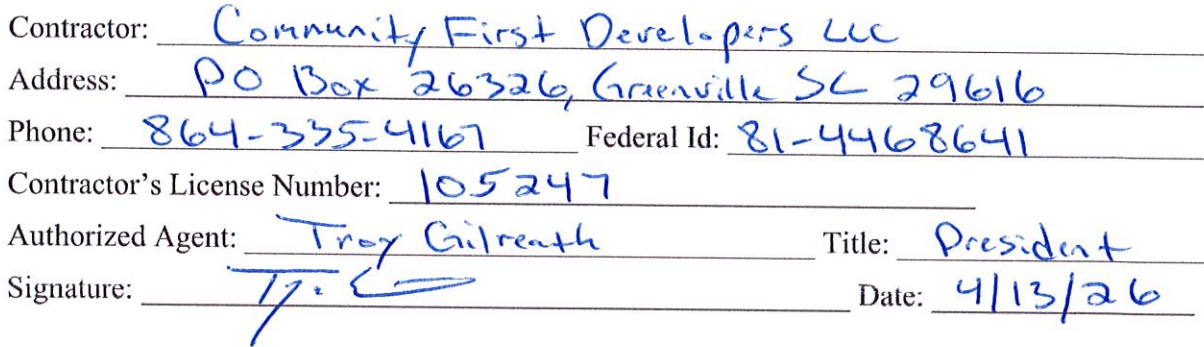 Contractor: Community First Developers LLC
Address: PO Box 26326, Greenville SC 29616
Phone: 864-335-4167 Federal Id: 81-4468641
Contractor's License Number: 105247
Authorized Agent: Troy Gilreath Title: President
Signature: Date: 4/13/26